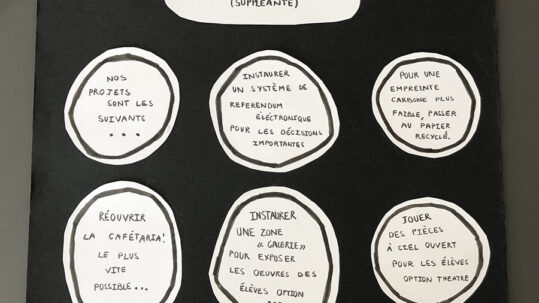 (SUPPLÉANTE)
NOS
PROJETS
SONT LES
SUIVANTS
...
INSTAURER
UN SYSTÈME DE
REFERENDUM
ÉLECTRONIQUE
POUR LES DÉCISIONS
IMPORTANTES
POUR UNE
EMPREINTE
CARBONE PLUS
FAIBLE, PASSER
AU PAPIER
RECYCLÉ.
RÉOUVRIR
LA CAFÉTARIA!
LE PLUS
VITE
POSSIBLE...
INSTAURER
UNE ZONE
"GALERIE"
POUR EXPOSER
LES OEUVRES DES
ÉLÈVES OPTION
JOUER
DES PIÈCES
À CIEL OUVERT
POUR LES ÉLÈVES
OPTION THEATRE